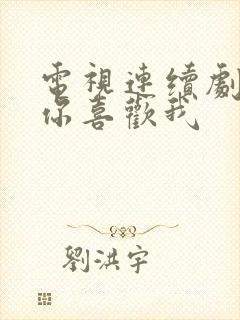 電視連續劇
你喜歡我
劉洪宇